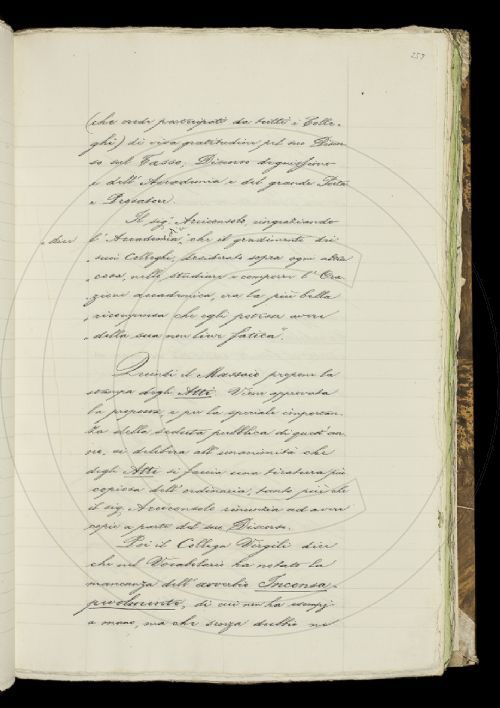 259
(che credo partecipata da tutti i Colle-
ghi) di viva gratitudine pel suo Discor-
so sul Tasso; Discorso degnissimo
e dell'Accademia e del grande Poeta
e Pensatore.
Il sig.r Arciconsolo, ringraziando
l'Accademia, dice "che il gradimento dei
" suoi Colleghi, desiderato sopra ogni altra
" cosa, nello studiare e comporre l'Ora-
" zione accademica, era la più bella
" ricompensa che egli poteva avere
" della sua non lieve fatica".
Quindi il Massaio propone la
stampa degli Atti. Viene approvata
la proposta, e per la speciale importan-
za della seduta pubblica di quest'an-
no, si delibera all'unanimità che
degli Atti si faccia una tiratura più
copiosa dell'ordinaria, tanto più che
il sig. Arciconsolo rinunzia ad avere
copie a parte del suo Discorso.
Poi il Collega Virgili dice
che nel Vocabolario ha notato la
mancanza dell'avverbio Inconsa-
pevolmente, di cui non ha esempj
a mano, ma che senza dubbio ne